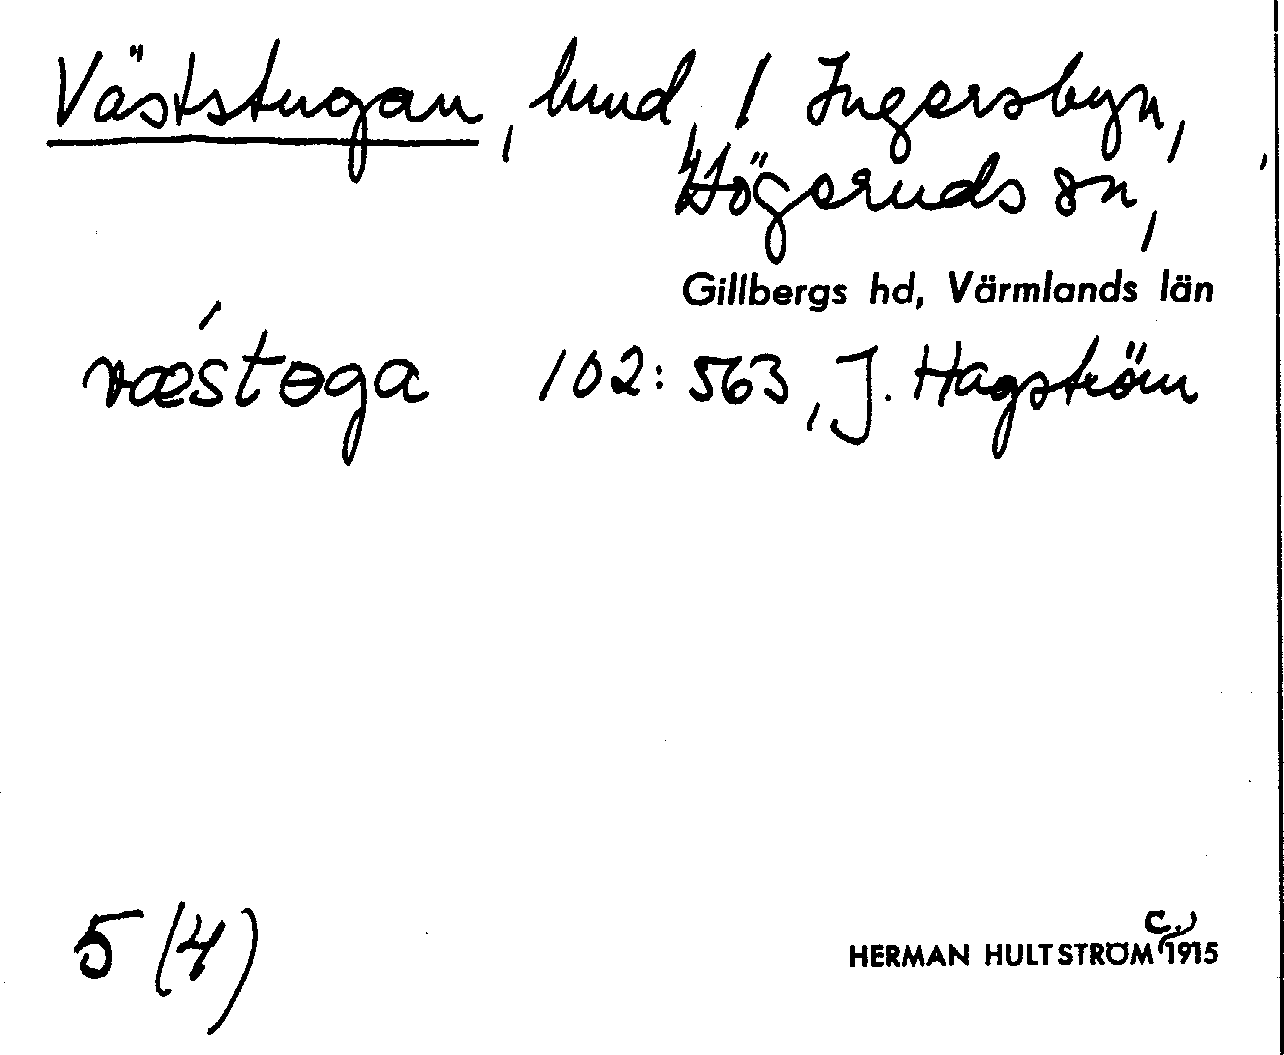 Väststugan, hmd, 1 Ingersbyn,
Högeruds sn,
Gillbergs hd, Värmlands län
væ´stɵga 102:563, J. Hagström
5 (4)
c.
HERMAN HULTSTRÖM 1915